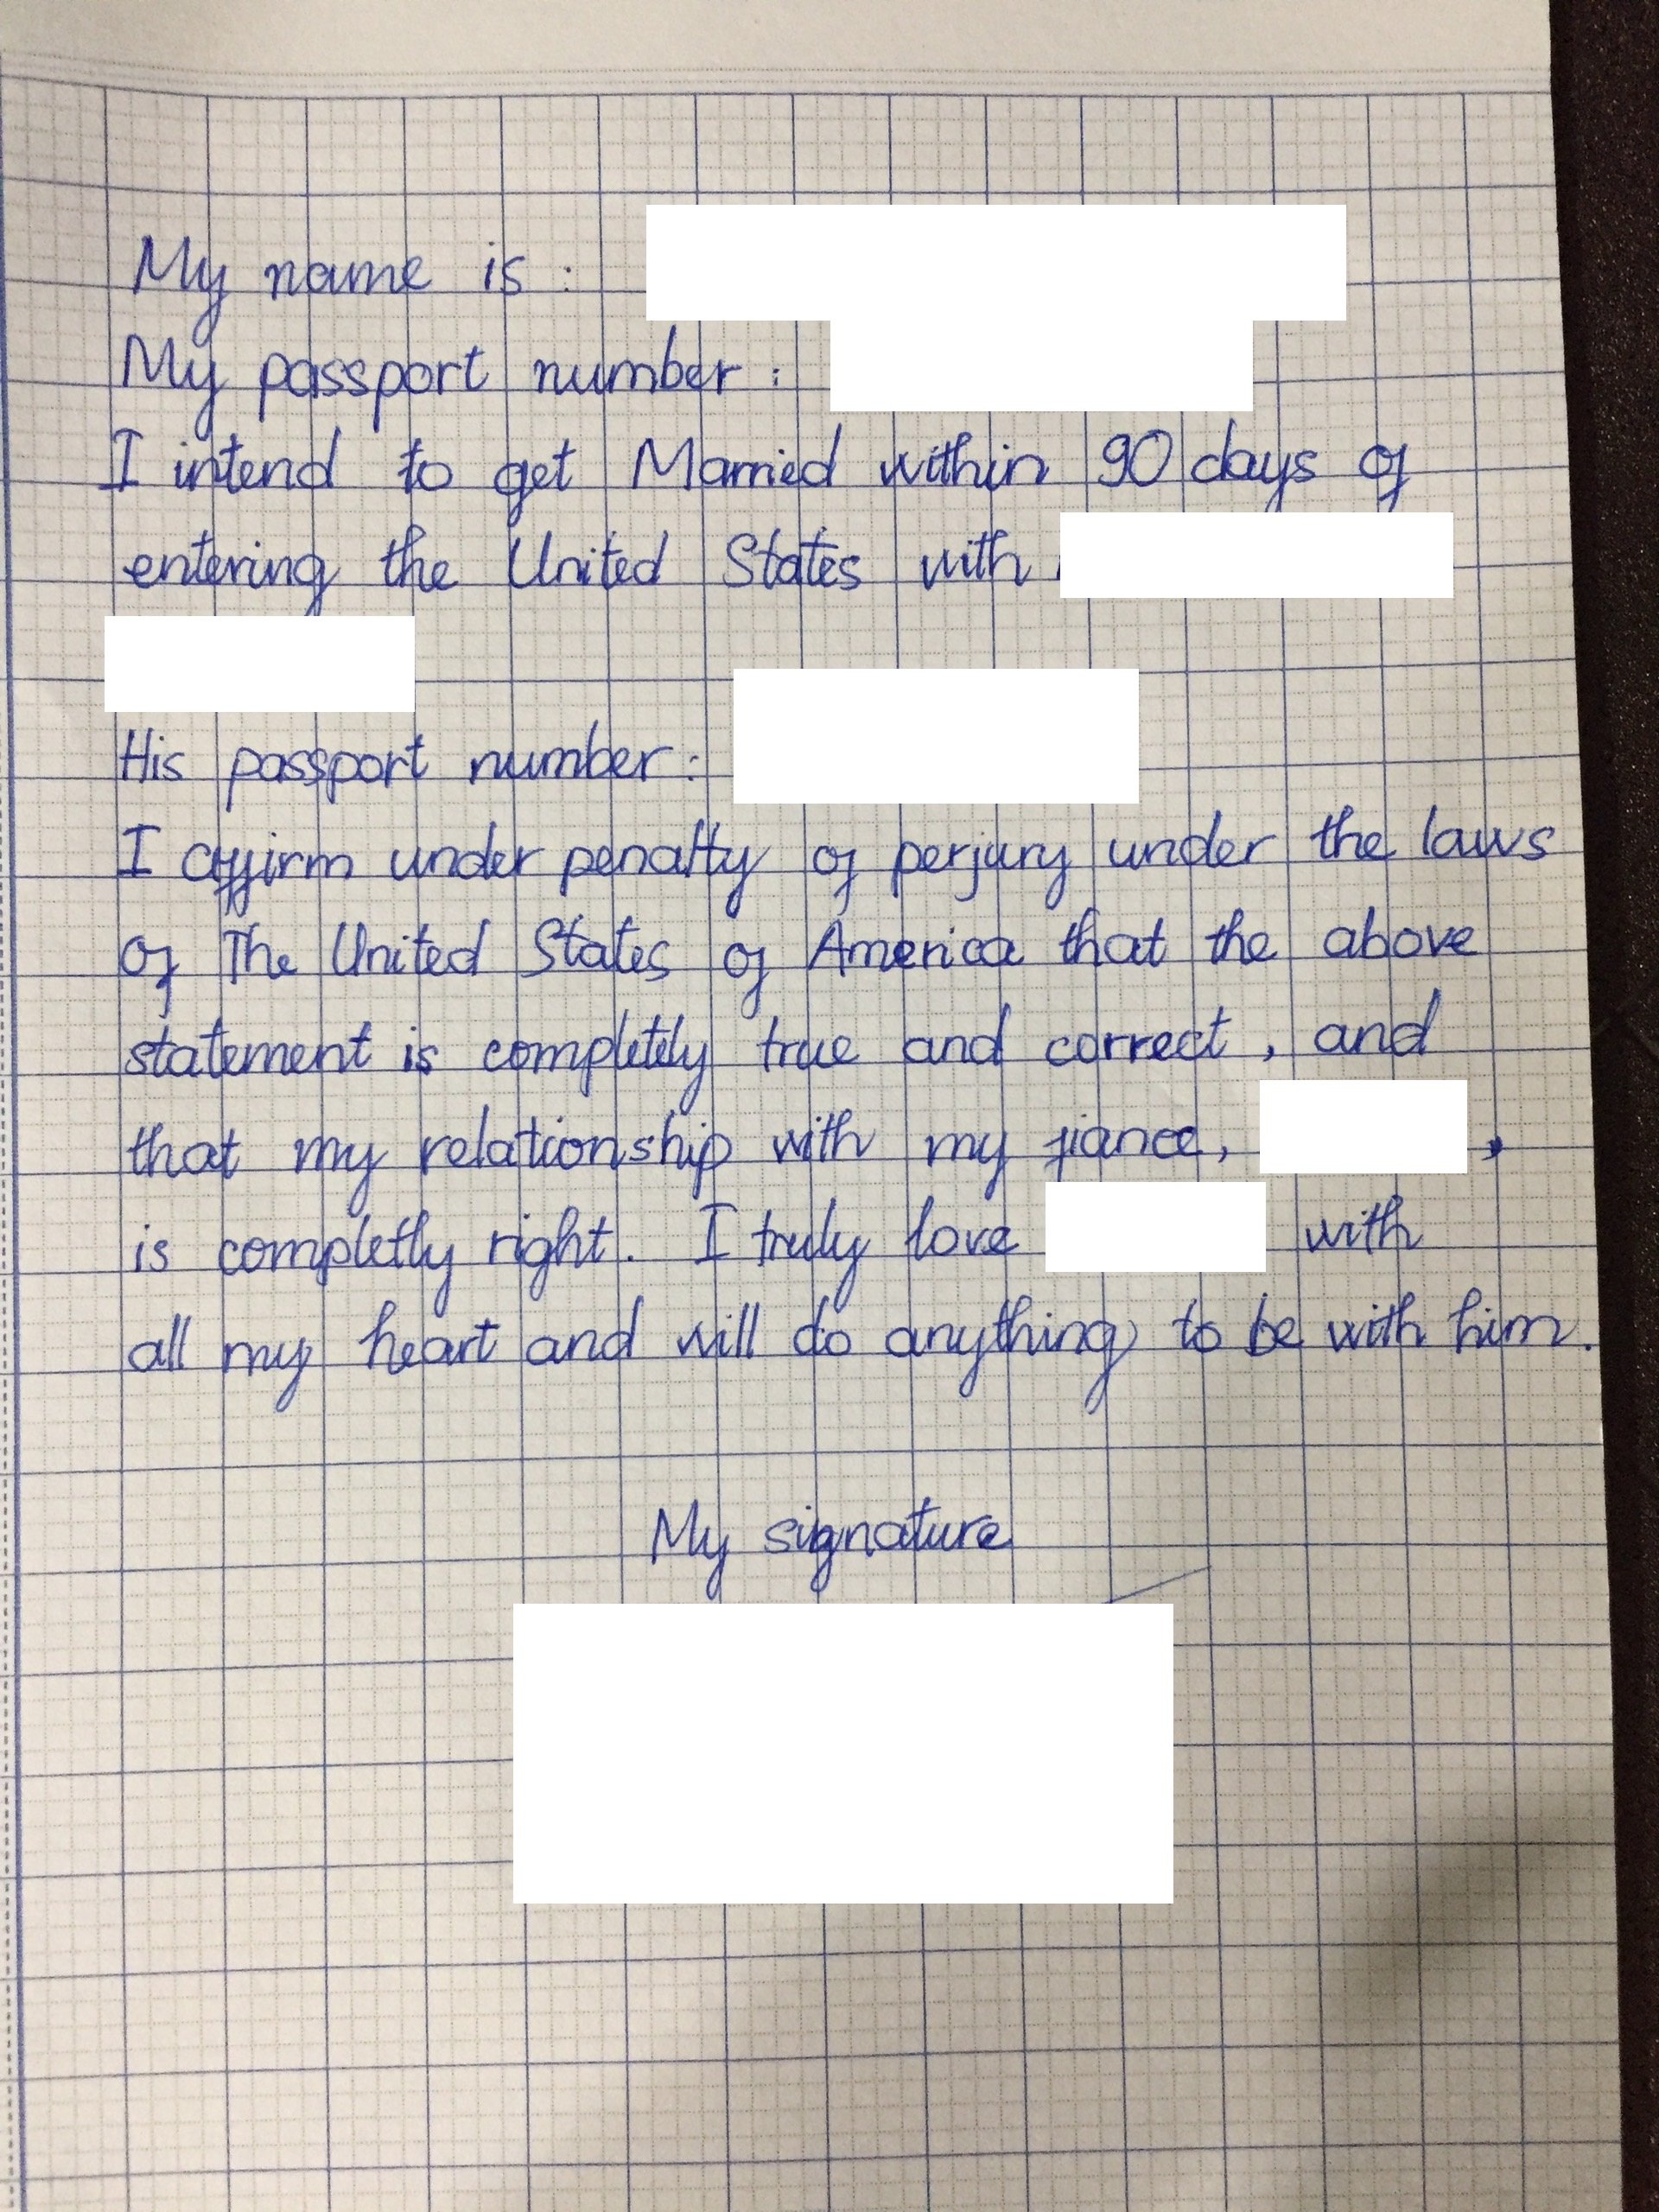 My name is :
My passport number :
I intend to get Married within 90 days of
entering the United States with
His passport number :
I affirm under penalty of perjury under the laws
of The United States of America that the above
statement is completely true and correct, and
that my relationship with my fiance, ,
is completly right. I truly love with
all my heart and will do anything to be with him.
My signature